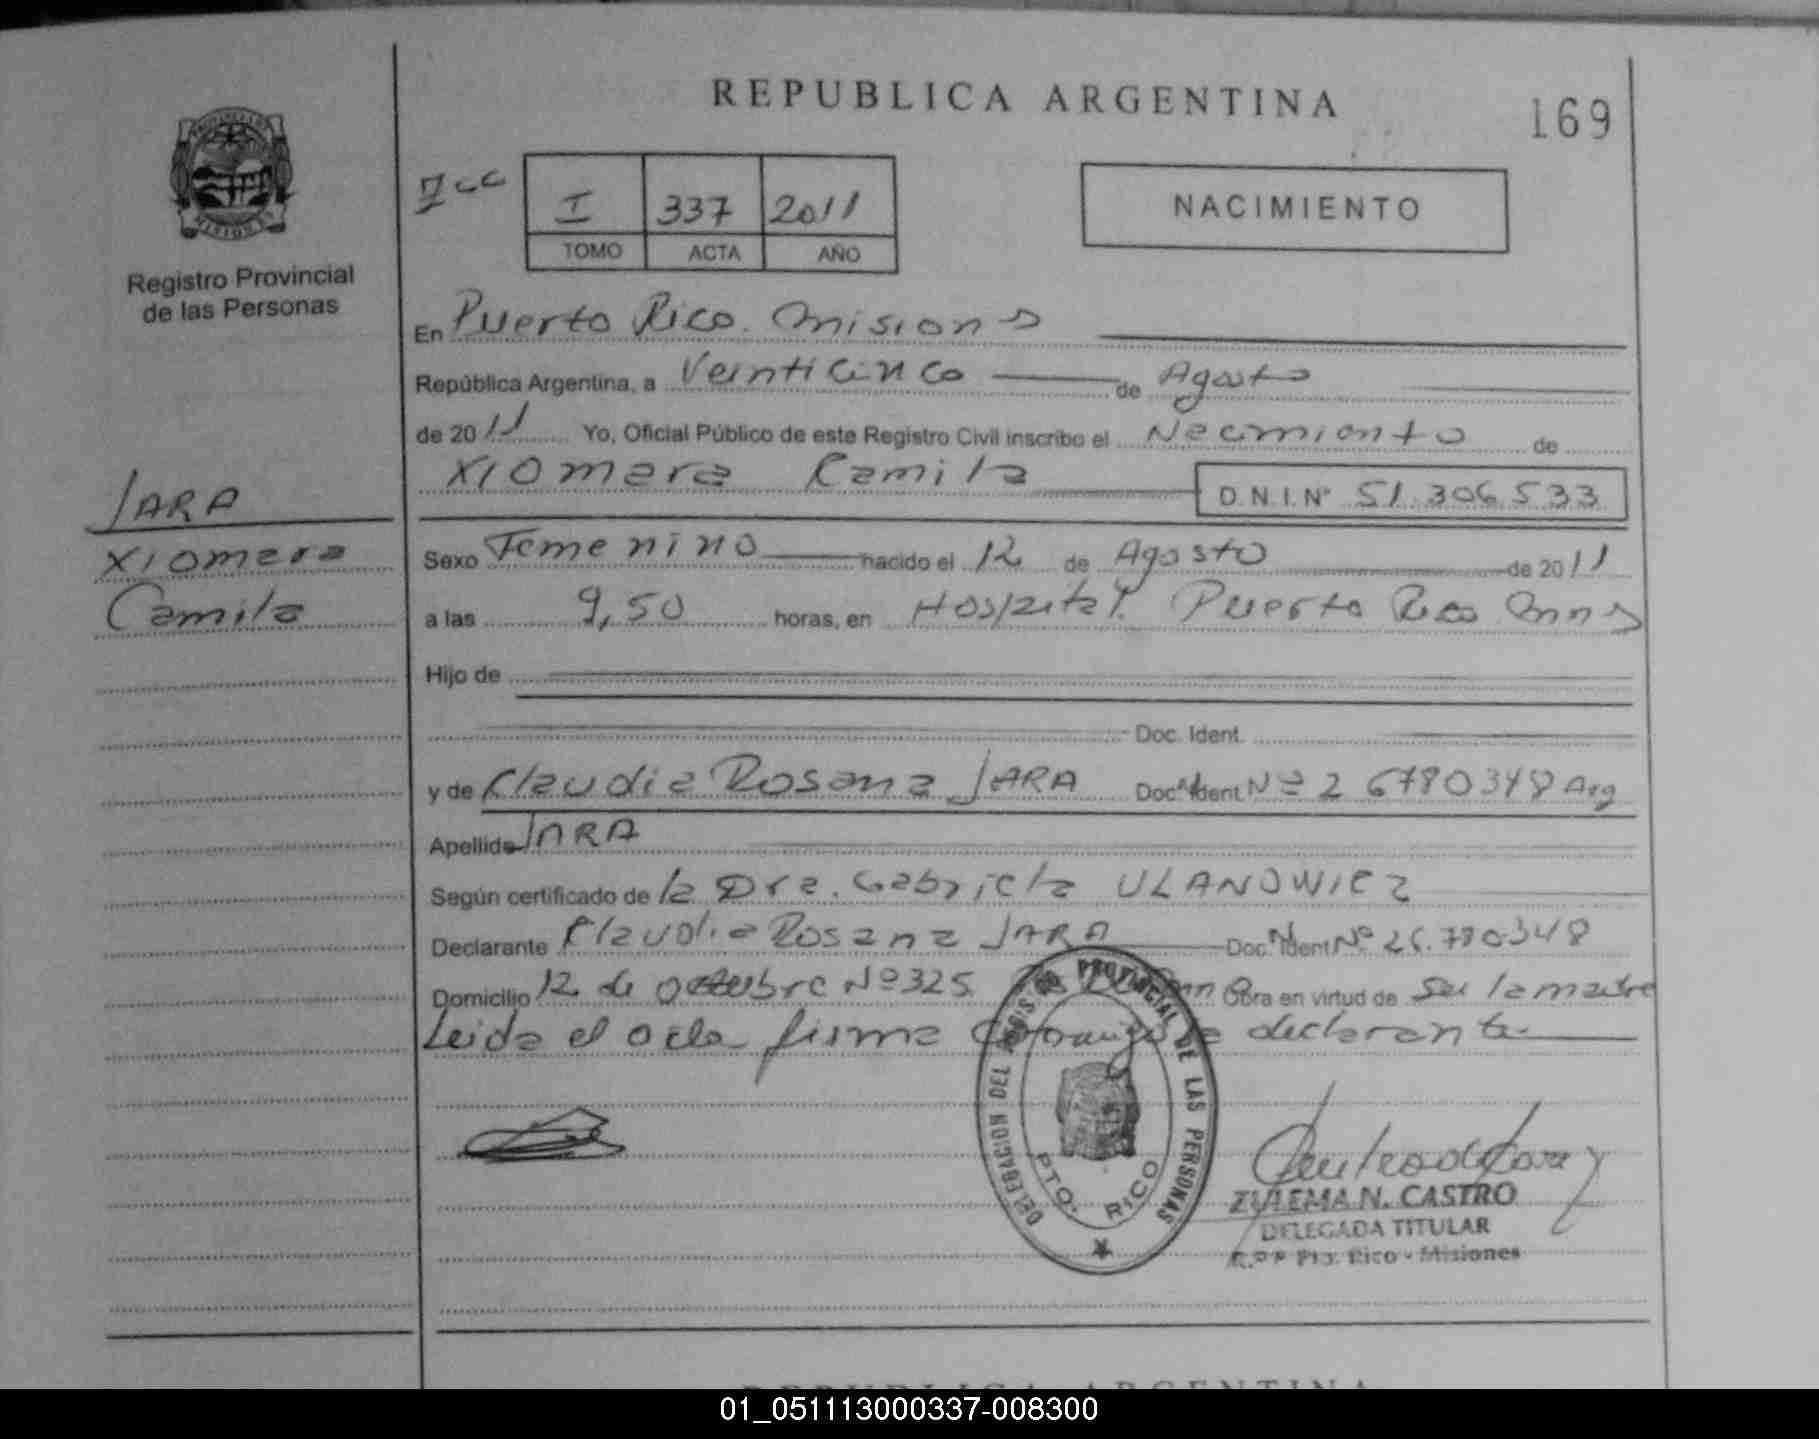 REPUBLICA ARGENTINA
169
PROVINCIA DE
MISIONES
Registro Provincial
de las Personas
I 337 2011
TOMO ACTA AÑO
NACIMIENTO
En Puerto Rico. Misiones
República Argentina, a Veinticinco de Agosto
de 2011 Yo, Oficial Público de este Registro Civil inscribo el Nacimiento de
Xiomara Camila D.N.I.Nº 51.306.533
JARA
Xiomara
Camila
Sexo Femenino nacido el 12 de Agosto de 2011
a las 9,50 horas, en Hospital. Puerto Rico Mnes
Hijo de
Doc. Ident.
y de Claudia Rosana JARA Doc. Ident Nº 26780348 Arg
Apellido JARA
Según certificado de la Dra. Gabriela ULANOWICZ
Declarante Claudia Rosana JARA Doc. Ident Nº 26.780348
Domicilio 12 de octubre Nº 325 Obra en virtud de ser la madre
Leida el acta firma declarante
DELEGACION DEL REGIS PROVINCIAL DE LAS PERSONAS
PTO. RICO
ZULEMA N. CASTRO
DELEGADA TITULAR
R.P.P Pto. Rico - Misiones
REPUBLICA ARGENTINA
01_051113000337-008300